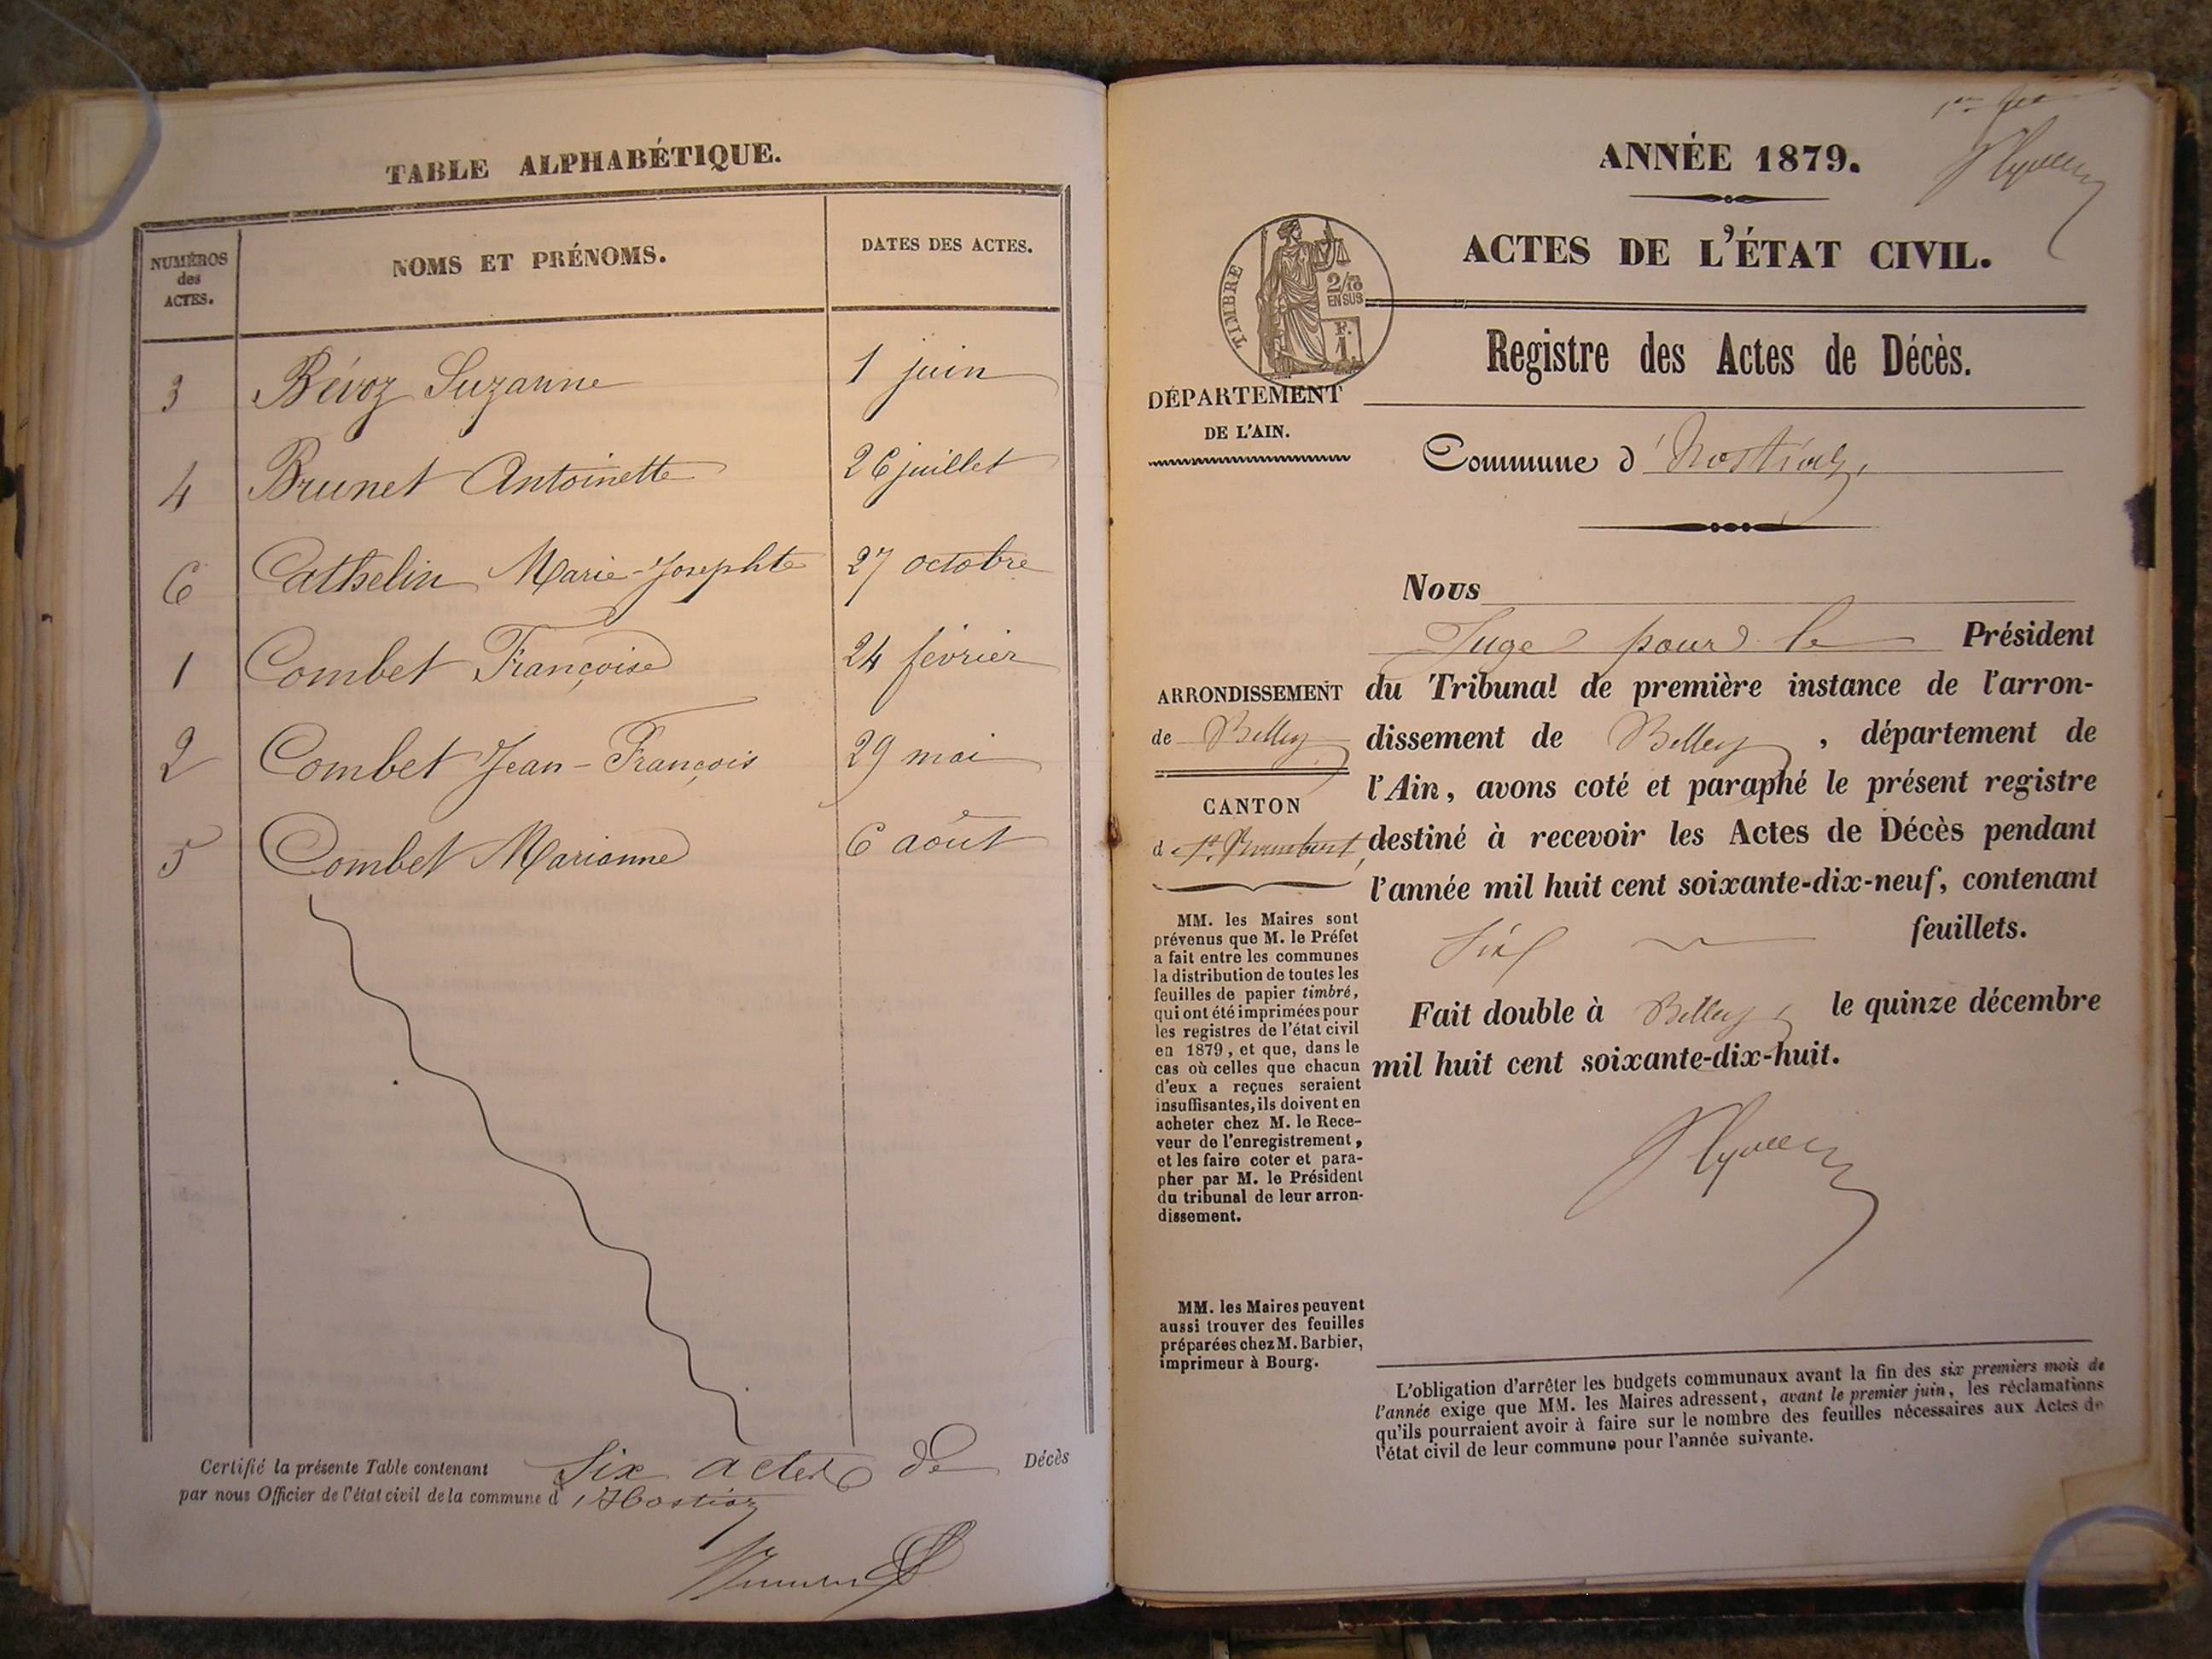 TABLE ALPHABÉTIQUE.
NUMÉROS
des
ACTES.
NOMS ET PRÉNOMS.
DATES DES ACTES.
3 Bévoz Suzanne 1 juin
4 Brunet Antoinette 26 juillet
6 Cathelin Marie-Josephte 27 octobre
1 Combet Françoise 24 février
2 Combet Jean-François 29 mai
5 Combet Marianne 6 août
Certifié la présente Table contenant Six actes de Décès
par nous Officier de l'état civil de la commune d'Hostiaz
ANNÉE 1879.
ACTES DE L'ÉTAT CIVIL.
TIMBRE
2/10
EN SUS
F.
1.
Registre des Actes de Décès.
DÉPARTEMENT
DE L'AIN.
Commune d'Hostiaz,
Nous
Juge pour le Président
du Tribunal de première instance de l'arron-
dissement de Belley, département de
l'Ain, avons coté et paraphé le présent registre
destiné à recevoir les Actes de Décès pendant
l'année mil huit cent soixante-dix-neuf, contenant
Six feuillets.
Fait double à Belley, le quinze décembre
mil huit cent soixante-dix-huit.
ARRONDISSEMENT
de Belley
CANTON
d St. Rambert,
MM. les Maires sont
prévenus que M. le Préfet
a fait entre les communes
la distribution de toutes les
feuilles de papier timbré,
qui ont été imprimées pour
les registres de l'état civil
en 1879, et que, dans le
cas où celles que chacun
d'eux a reçues seraient
insuffisantes, ils doivent en
acheter chez M. le Rece-
veur de l'enregistrement,
et les faire coter et para-
pher par M. le Président
du tribunal de leur arron-
dissement.
MM. les Maires peuvent
aussi trouver des feuilles
préparées chez M. Barbier,
imprimeur à Bourg.
L'obligation d'arrêter les budgets communaux avant la fin des six premiers mois de
l'année exige que MM. les Maires adressent, avant le premier juin, les réclamations
qu'ils pourraient avoir à faire sur le nombre des feuilles nécessaires aux Actes de
l'état civil de leur commune pour l'année suivante.